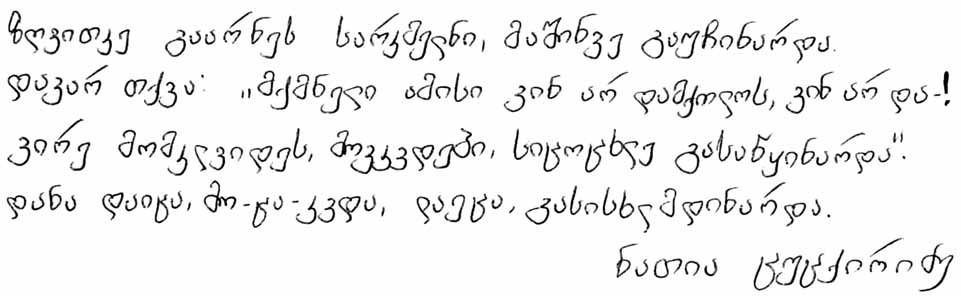 ზღვითკე გაარნეს სარკმელნი, მაშინვე გაუჩინარდა.
დავარ თქვა: „მქმნელი ამისი ვინ არ დამქოლოს, ვინ არ და-!
ვირე მომკლვიდეს, მოვკვდები, სიცოცხლე გასაწყინარდა".
დანა დაიცა, მო-ცა-კვდა, დაეცა, გასისხლმდინარდა.
ნათია ცუცქირიძე